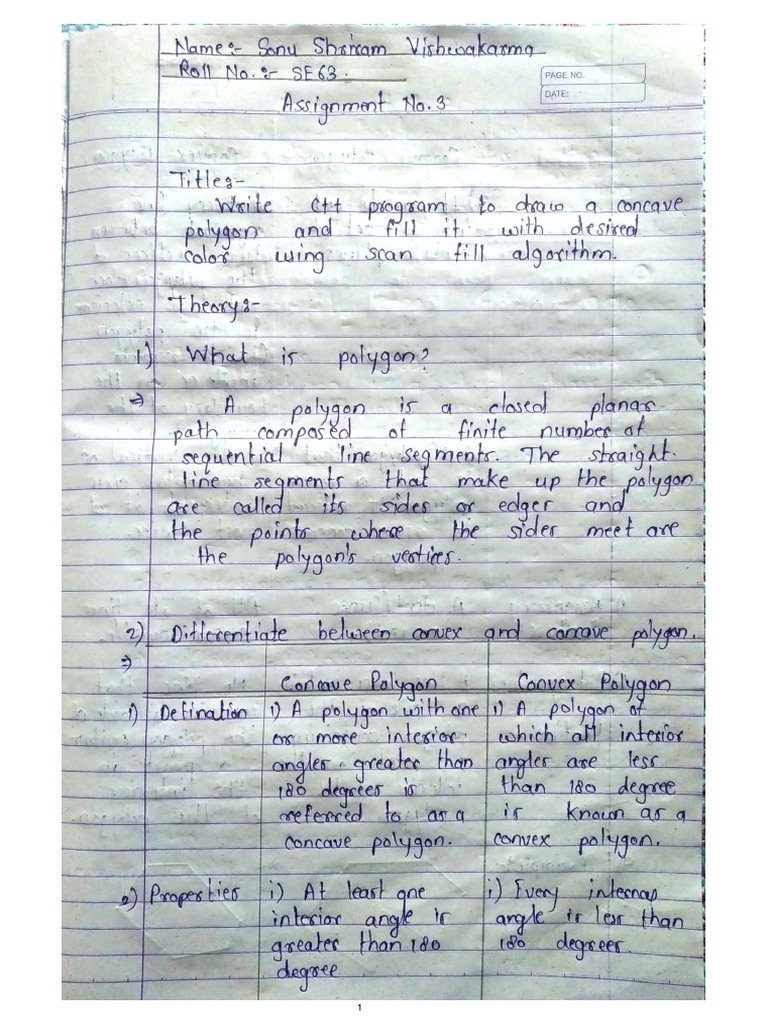 Name:- Sonu Shriram Vishwakarma
Roll No.:- SE63.
PAGE NO.
DATE:
Assignment No. 3
Title:-
Write C++ program to draw a concave
polygon and fill it with desired
color using scan fill algorithm.
Theory:-
1) What is polygon?
⇒ A polygon is a closed planar
path composed of finite number of
sequential line segments. The straight
line segments that make up the polygon
are called its sides or edges and
the points where the sides meet are
the polygon's vertices.
2) Differentiate between convex and concave polygon.
⇒
Concave Polygon Convex Polygon
1) Defination i) A polygon with one i) A polygon of
or more interior which all interior
angles greater than angles are less
180 degrees is than 180 degree
referred to as a is known as a
concave polygon. convex polygon.
2) Properties i) At least one i) Every internal
interior angle is angle is less than
greater than 180 180 degrees.
degree
1